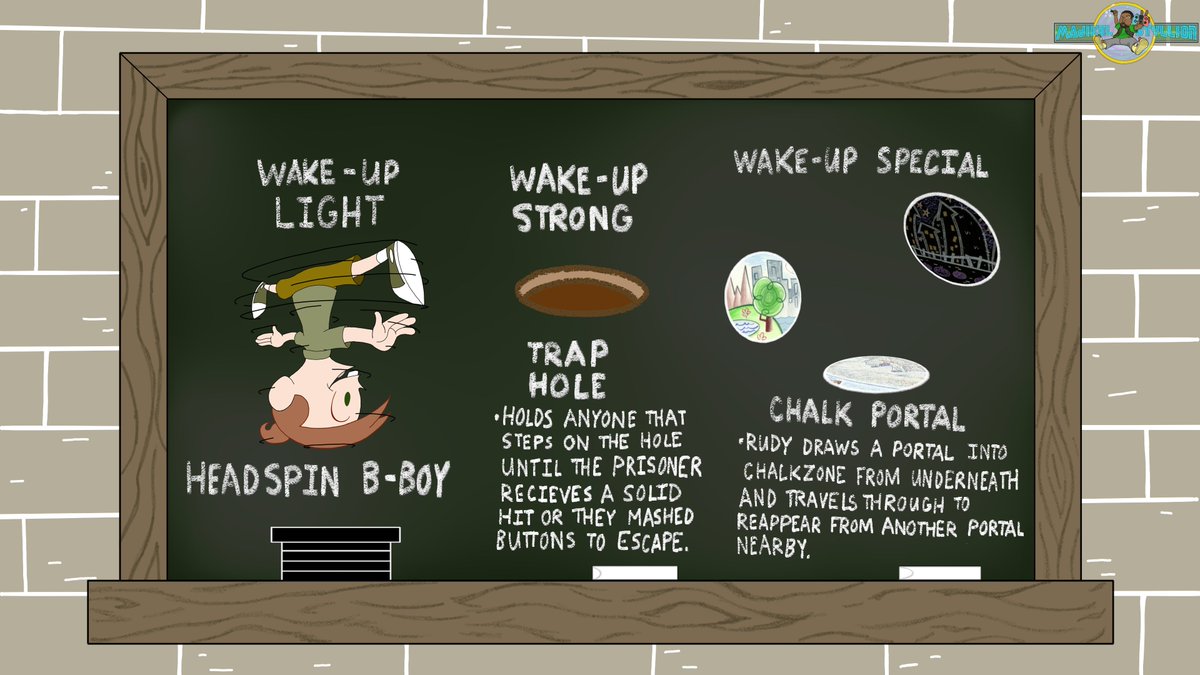 WAKE-UP
LIGHT
HEADSPIN B-BOY
WAKE-UP
STRONG
TRAP
HOLE
•HOLDS ANYONE THAT
STEPS ON THE HOLE
UNTIL THE PRISONER
RECIEVES A SOLID
HIT OR THEY MASHED
BUTTONS TO ESCAPE.
WAKE-UP SPECIAL
CHALK PORTAL
•RUDY DRAWS A PORTAL INTO
CHALKZONE FROM UNDERNEATH
AND TRAVELS THROUGH TO
REAPPEAR FROM ANOTHER PORTAL
NEARBY.